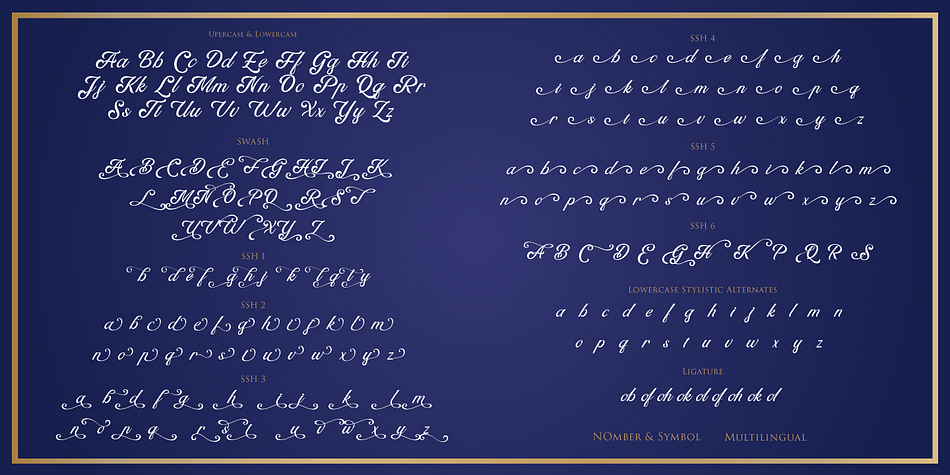 Upercase & Lowercase
Aa Bb Cc Dd Ee Ff Gg Hh Ii
Jj Kk Ll Mm Nn Oo Pp Qq Rr
Ss Tt Uu Vv Ww Xx Yy Zz
SWASH
A B C D E F G H I J K
L M N O P Q R S T
U V W X Y Z
SSH 1
b d e f g h j k l q t y
SSH 2
a b c d e f g h i j k l m
n o p q r s t u v w x y z
SSH 3
a b d f g h i j k l m
n o p q r s t u v w x y z
SSH 4
a b c d e f g h
i j k l m n o p q
r s t u v w x y z
SSH 5
a b c d e f g h i k l m
n o p q r s u v w x y z
SSH 6
A B C D E G H K P Q R S
Lowercase Stylistic Alternates
a b c d e f g h i j k l m n
o p q r s t u v w x y z
Ligature
ob of oh ok ol of oh ok ol
NOmber & Symbol
Multilingual